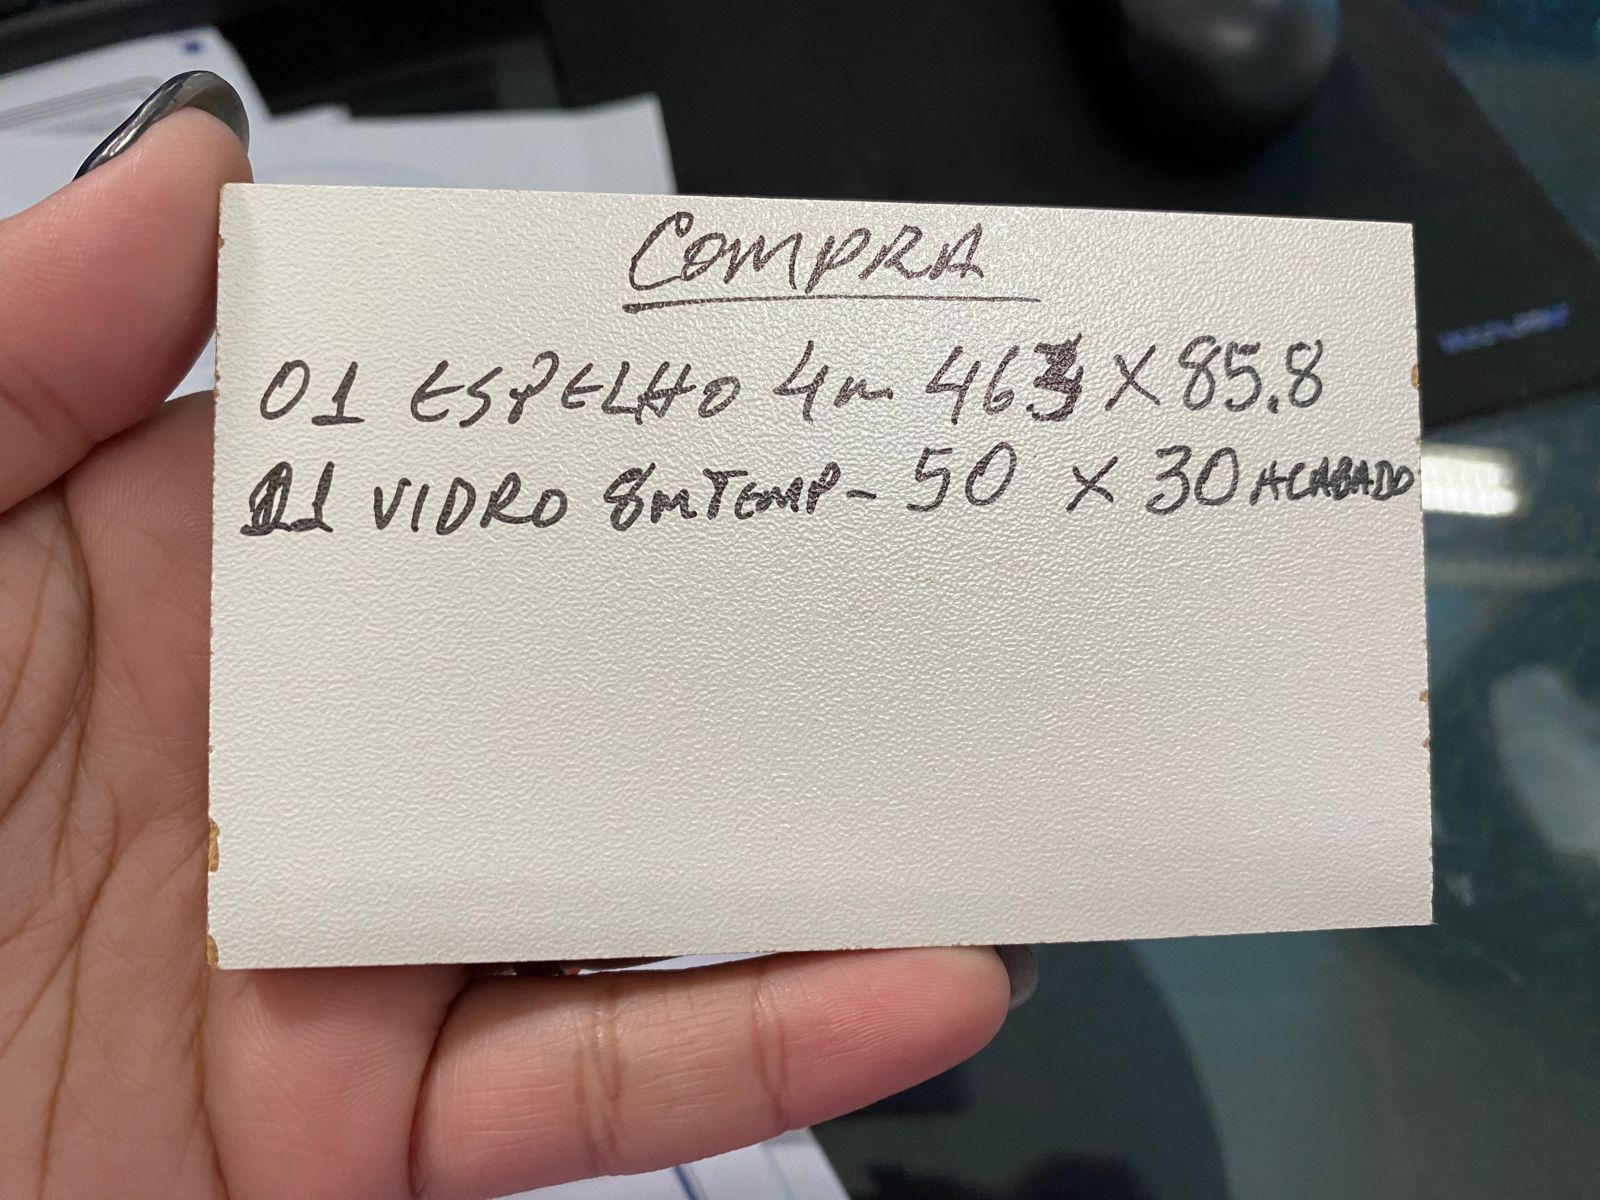 COMPRA
01 ESPELHO 4m 463 X 85.8
01 VIDRO 8m TEMP - 50 X 30 ACABADO